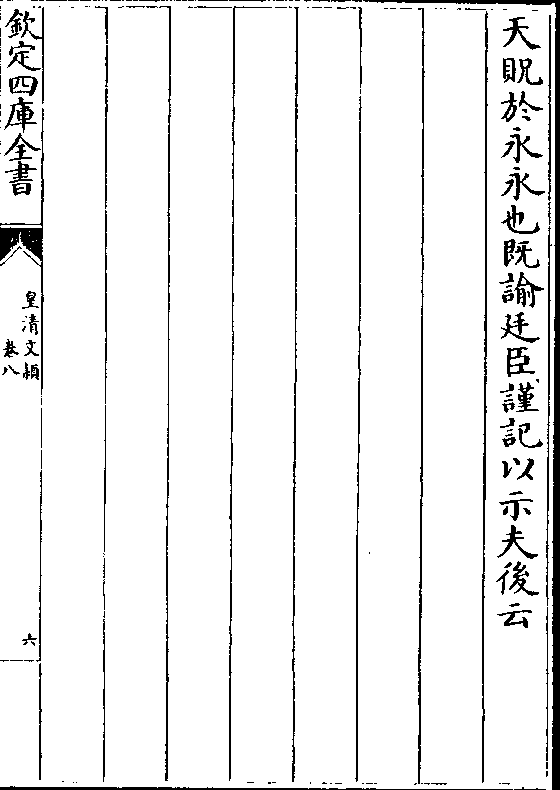 天貺於永永也既諭廷臣謹記以示夫後云
欽定四庫全書
皇清文穎
卷八
六